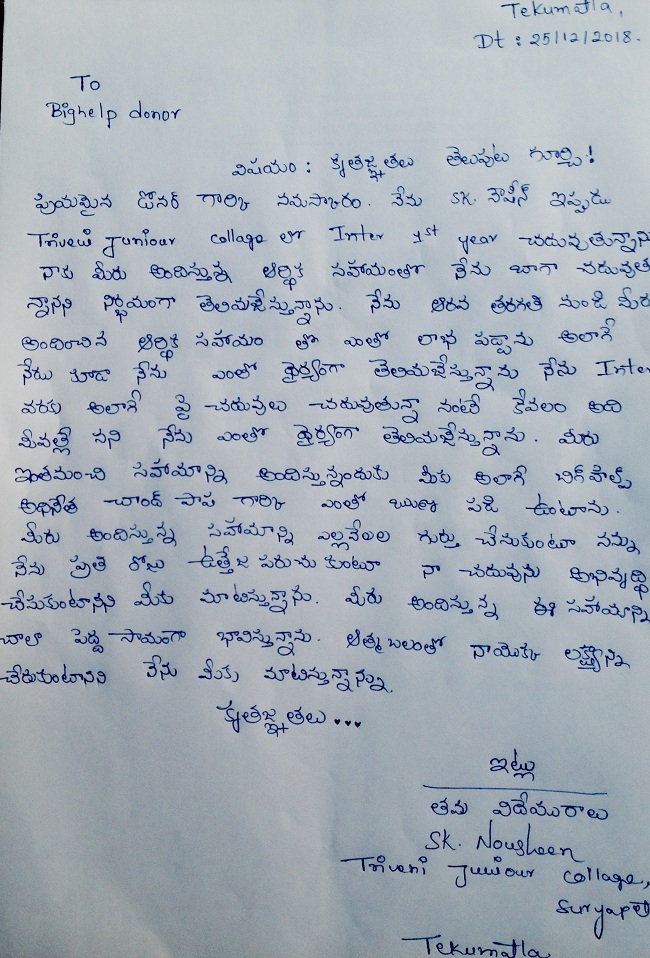 Tekumatla,
Dt : 25/12/2018.
To
Bighelp donor
విషయం : కృతజ్ఞతలు తెలుపుట గూర్చి!
ప్రియమైన డోనర్ గారికి నమస్కారం. నేను SK. నౌషీన్ ఇప్పుడు
Triveni Juniour collage లో Inter 1st year చదువుతున్నాను
నాకు మీరు అందిస్తున్న ఆర్థిక సహాయంతో నేను బాగా చదువుతు
న్నానని నిర్భయంగా తెలియజేస్తున్నాను. నేను ఆరవ తరగతి నుండి మీరు
అందించిన ఆర్థిక సహాయం తో ఎంతో లాభ పడ్డాను అలాగే
నేరు కూడా నేను ఎంతో ధైర్యంగా తెలియజేస్తున్నాను నేను Inter
వరకు అలాగే పై చదువులు చదువుతున్నా నంటే కేవలం అది
మీవల్లే నని నేను ఎంతో ధైర్యంగా తెలియజేస్తున్నాను. మీరు
ఇంతమంచి సహాయాన్ని అందిస్తున్నందుకు మీకు అలాగే బిగ్ హెల్ప్
అధినేత చాంద్ పాష గారికి ఎంతో ఋణ పడి ఉంటాను.
మీరు అందిస్తున్న సహాయాన్ని ఎల్లవేలల గుర్తు చేసుకుంటూ నన్ను
నేను ప్రతి రోజు ఉత్తేజ పరుచు కుంటూ నా చదువును అభివృద్ధి
చేసుకుంటానని మీకు మాటిస్తున్నాను. మీరు అందిస్తున్న ఈ సహాయాన్ని
చాలా పెద్ద సాయంగా భావిస్తున్నాను. ఆత్మ బలంతో నాయొక్క లక్ష్యాన్ని
చేరుకుంటానని నేను మీకు మాటిస్తున్నాన్ను.
కృతజ్ఞతలు...
ఇట్లు
తమ విదేయురాలు
SK. Nousheen
Triveni Juniour collage,
Suryapet
Tekumatla